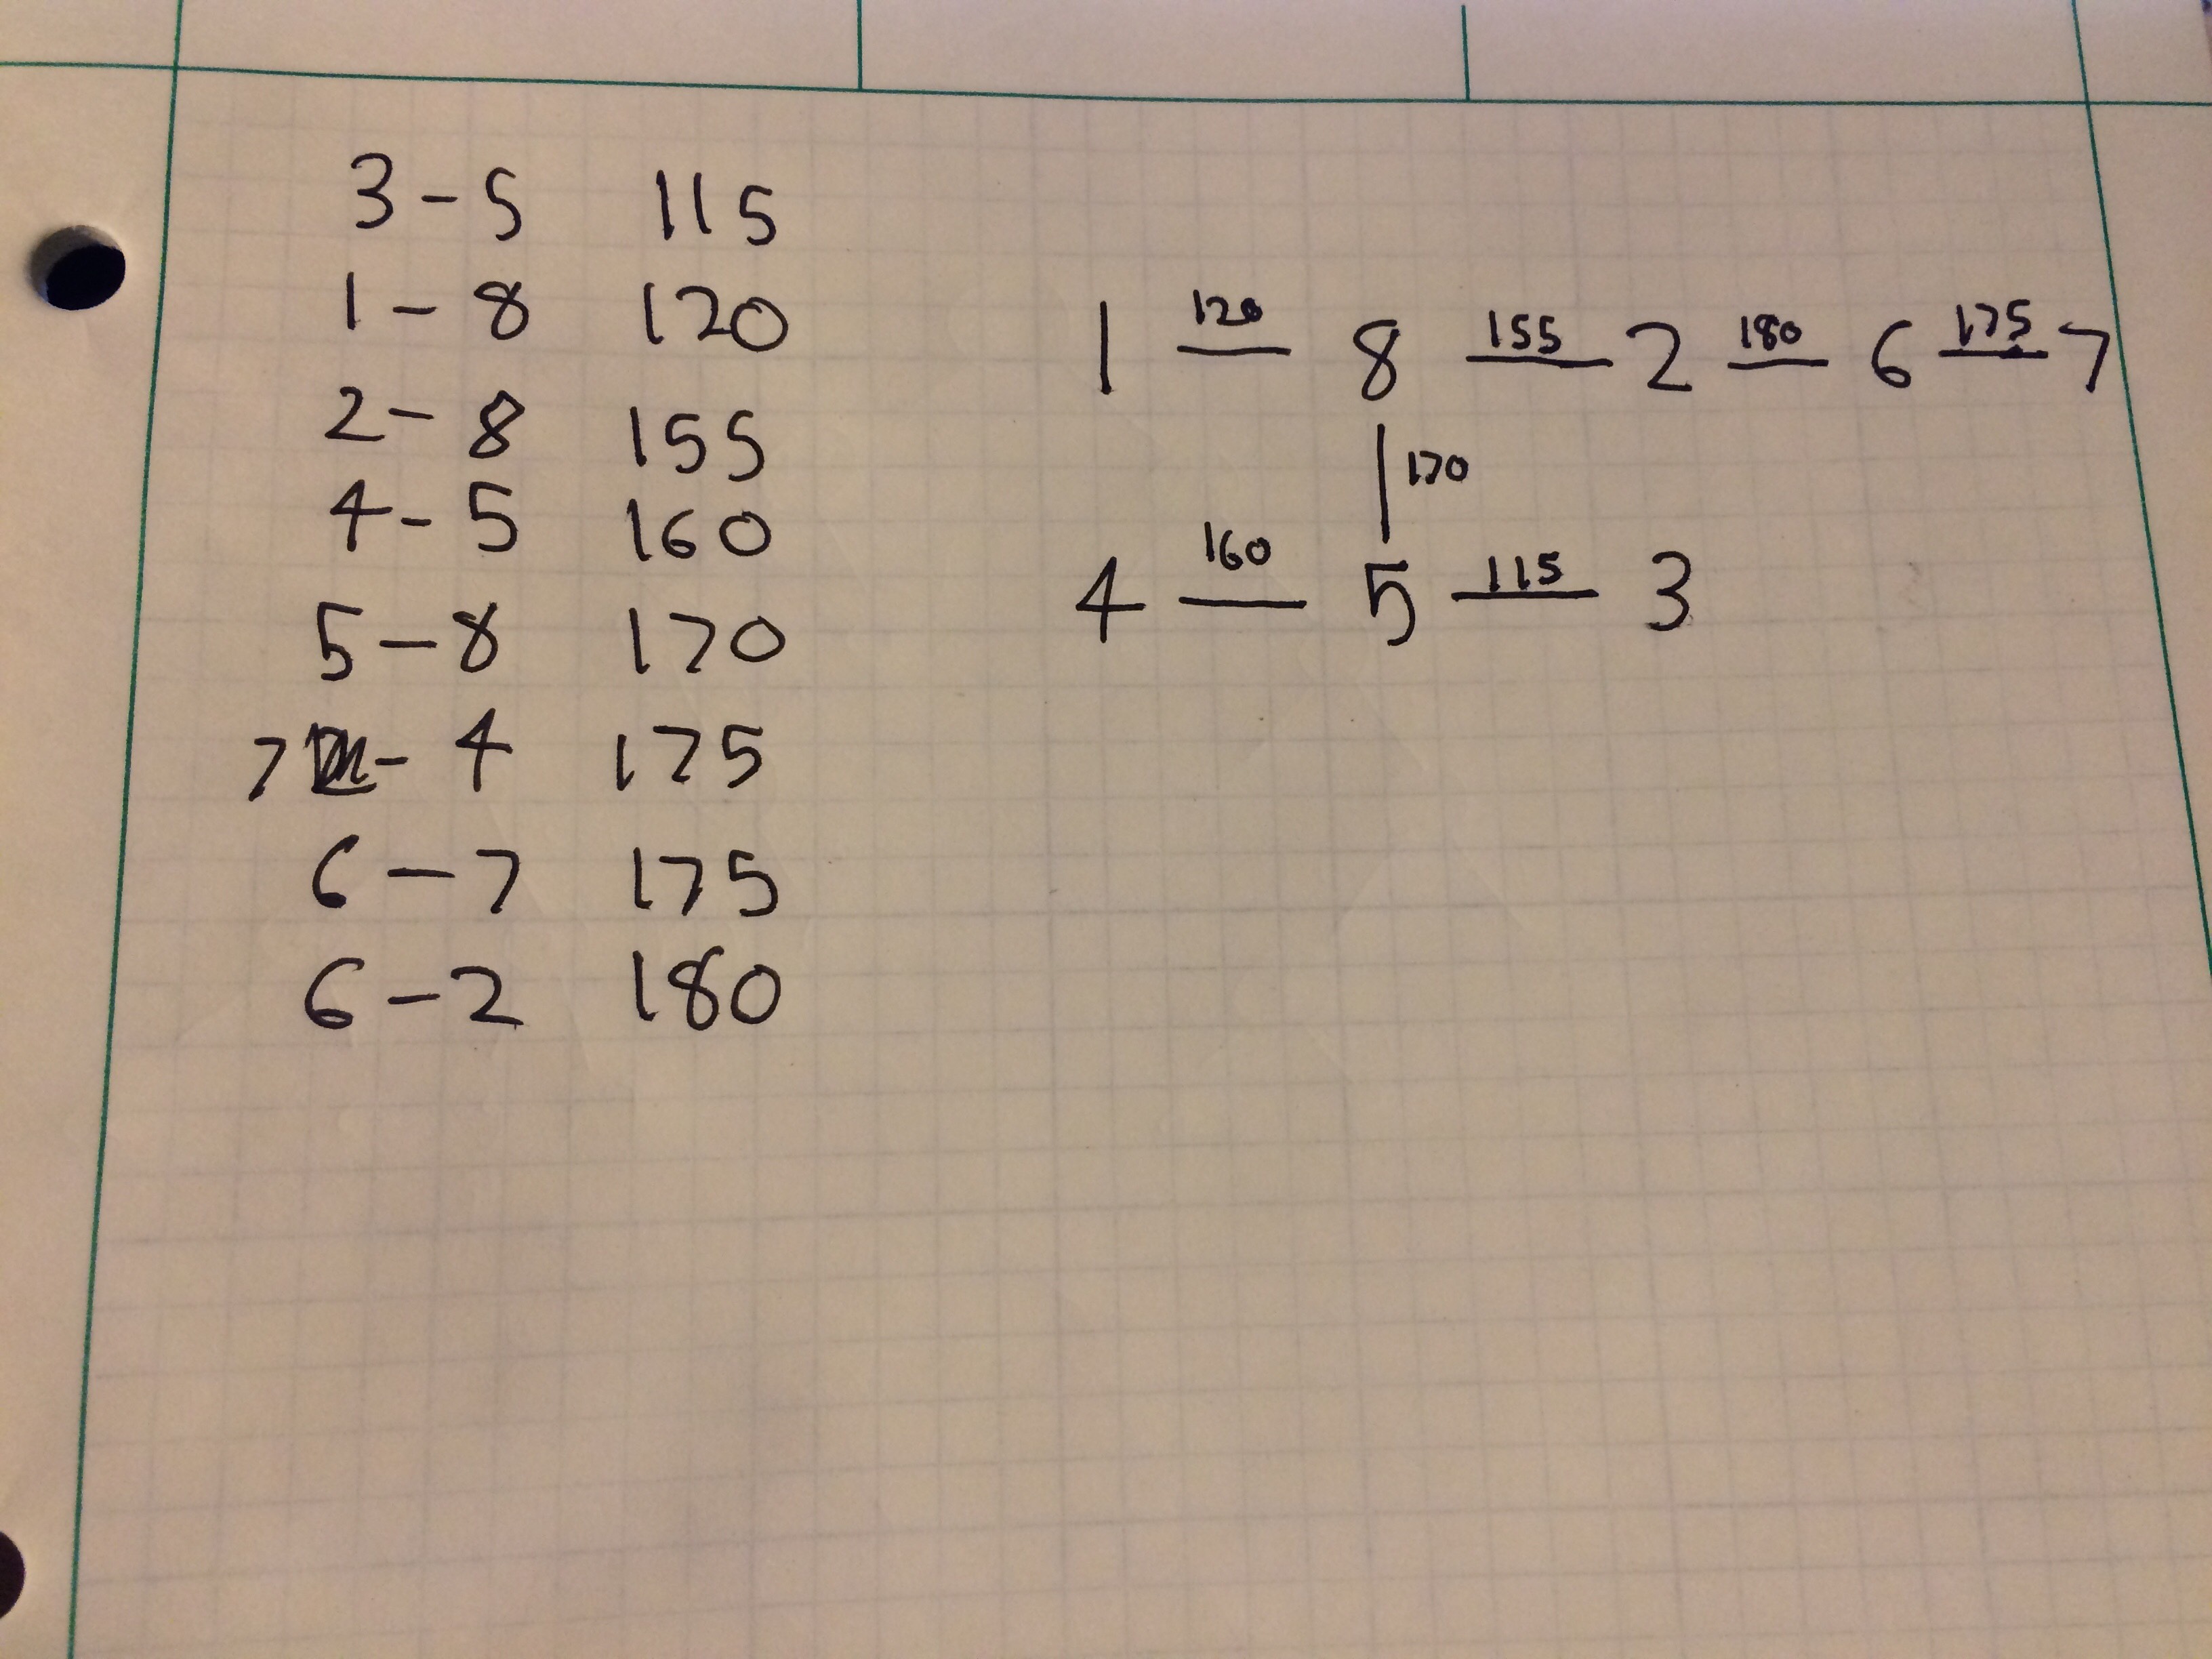 3 - 5 115
1 - 8 120
2 - 8 155
4 - 5 160
5 - 8 170
7 - 4 175
6 - 7 175
6 - 2 180
1 120 8 155 2 180 6 175 7
170
4 160 5 115 3